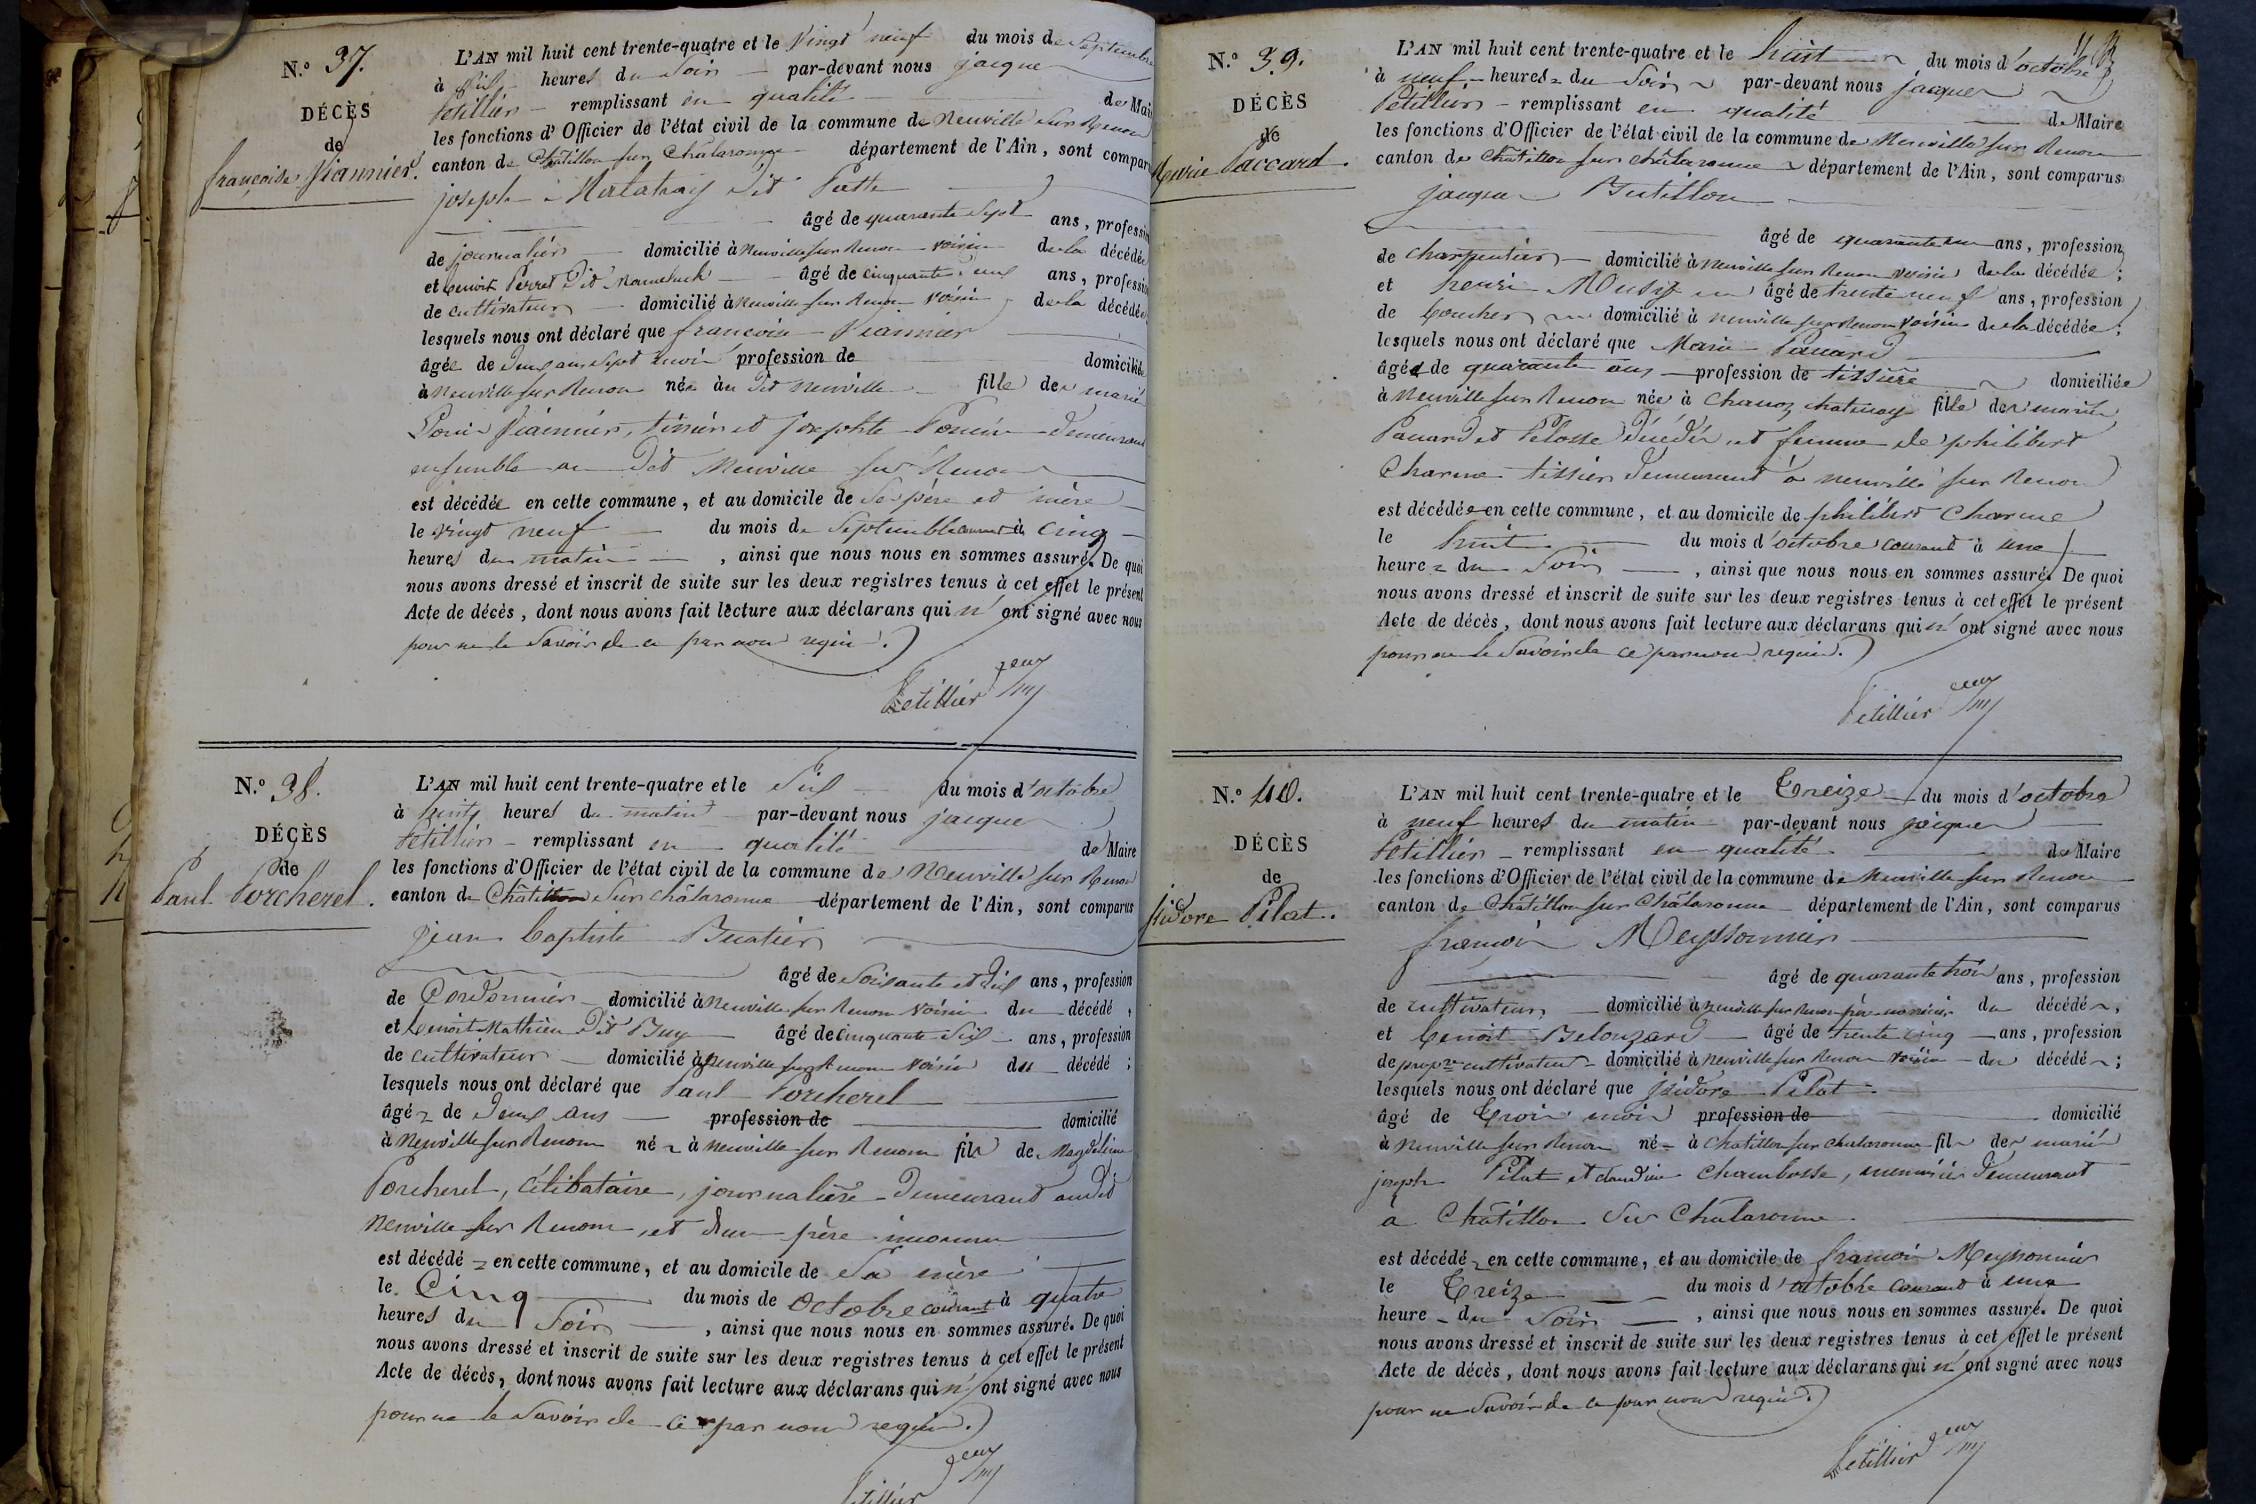 N.° 37.
DÉCÈS
de
françoise Viannier.
L'AN mil huit cent trente-quatre et le Vingt neuf du mois de Septembre
à Six heures du Soir par-devant nous jacques
Petillier remplissant en qualité de Mai
les fonctions d'Officier de l'état civil de la commune de Neuville sur Renom
canton de Châtillon sur Chalaronne département de l'Ain, sont compar
joseph Malatray dit
âgé de quarante Sept ans, professi
de journalier domicilié à Neuville sur Renom voisin de la décédée
et benoit Perret Dit Mameluck âgé de cinquante deux ans, professi
de cultivateur domicilié à Neuville sur Renom voisin de la décédée
lesquels nous ont déclaré que francoise Viannier
âgée de Deux ans Sept mois profession de domiciliée
à Neuville sur Renom née au dit Neuville fille de marié
Viannier, tissier et josephte Poncin demeurant
ensemble au Dit Neuville sur Renom
est décédée en cette commune, et au domicile de Ses père et mère
le vingt neuf du mois de Septembre courant à cinq
heures du matin, ainsi que nous nous en sommes assuré. De quoi
nous avons dressé et inscrit de suite sur les deux registres tenus à cet effet le présent
Acte de décès, dont nous avons fait lecture aux déclarans qui n' ont signé avec nous
pour ne le Savoir de ce par nous requis.
Petillier
N.° 38.
DÉCÈS
de
Paul Porcherel.
L'AN mil huit cent trente-quatre et le Six du mois d'octobre
à huit heures du matin par-devant nous jacques
Petillier remplissant en qualité de Maire
les fonctions d'Officier de l'état civil de la commune de Neuville sur Renom
canton de Châtillon sur chalaronne département de l'Ain, sont comparus
jean baptiste Buatier
âgé de Soixante et dix ans, profession
de Cordonnier domicilié à Neuville sur Renom voisin du décédé,
et benoit Mathieu dit Buy âgé de cinquante Six ans, profession
de cultivateur domicilié à Neuville sur Renom voisin du décédé;
lesquels nous ont déclaré que Paul Porcherel
âgé de Deux ans profession de domicilié
à Neuville sur Renom né à Neuville sur Renom fils de Magdeleine
Porcherel, célibataire, journalière demeurant audit
Neuville sur Renom, et d'un père inconnu
est décédé en cette commune, et au domicile de Sa mère
le Cinq du mois de Octobre courant à quatre
heures du Soir, ainsi que nous nous en sommes assuré. De quoi
nous avons dressé et inscrit de suite sur les deux registres tenus à cet effet le présent
Acte de décès, dont nous avons fait lecture aux déclarans qui n' ont signé avec nous
pour ne le Savoir de ce par nous requis.
Petillier
N.° 39.
DÉCÈS
de
Marie Paccard.
L'AN mil huit cent trente-quatre et le huit du mois d'octobre
à neuf heures du Soir par-devant nous jacques
Petillier remplissant en qualité de Maire
les fonctions d'Officier de l'état civil de la commune de Neuville sur Renom
canton de Châtillon sur chalaronne département de l'Ain, sont comparus
jacques Butillon
âgé de ans, profession
de charpentier domicilié à Neuville sur Renom voisin de la décédée;
et henri âgé de trente neuf ans, profession
de boucher domicilié à Neuville sur Renom voisin de la décédée;
lesquels nous ont déclaré que Marie Paccard
âgée de quarante ans profession de tissière domiciliée
à Neuville sur Renom née à Chanoz chatenay fille de mariés
Paccard et Pelosse Décédés et femme de philibert
Charme tissier demeurant à Neuville sur Renom
est décédée en cette commune, et au domicile de philibert Charme
le huit du mois d'octobre courant à une
heure du Soir, ainsi que nous nous en sommes assuré. De quoi
nous avons dressé et inscrit de suite sur les deux registres tenus à cet effet le présent
Acte de décès, dont nous avons fait lecture aux déclarans qui n' ont signé avec nous
pour ne le Savoir de ce par nous requis.
Petillier
N.° 40.
DÉCÈS
de
isidore Pilat.
L'AN mil huit cent trente-quatre et le Treize du mois d'octobre
à neuf heures du matin par-devant nous jacques
Petillier remplissant en qualité de Maire
les fonctions d'Officier de l'état civil de la commune de Neuville sur Renom
canton de Châtillon sur Chalaronne département de l'Ain, sont comparus
françois Meyssonnier
âgé de quarante trois ans, profession
de cultivateur domicilié à Neuville sur Renom père nourricier du décédé,
et benoit Belouzard âgé de trente cinq ans, profession
de prop.re cultivateur domicilié à Neuville sur Renom voisin du décédé;
lesquels nous ont déclaré que isidore Pilat
âgé de Trois mois profession de domicilié
à Neuville sur Renom né à Chatillon sur chalaronne fils de mariés
joseph Pilat et claudine Chambosse, demeurant
à Châtillon Sur Chalaronne
est décédé en cette commune, et au domicile de francois Meyssonnier
le Treize du mois d'octobre courant à une
heure du Soir, ainsi que nous nous en sommes assuré. De quoi
nous avons dressé et inscrit de suite sur les deux registres tenus à cet effet le présent
Acte de décès, dont nous avons fait lecture aux déclarans qui n' ont signé avec nous
pour ne Savoir de ce par nous requis.
Petillier